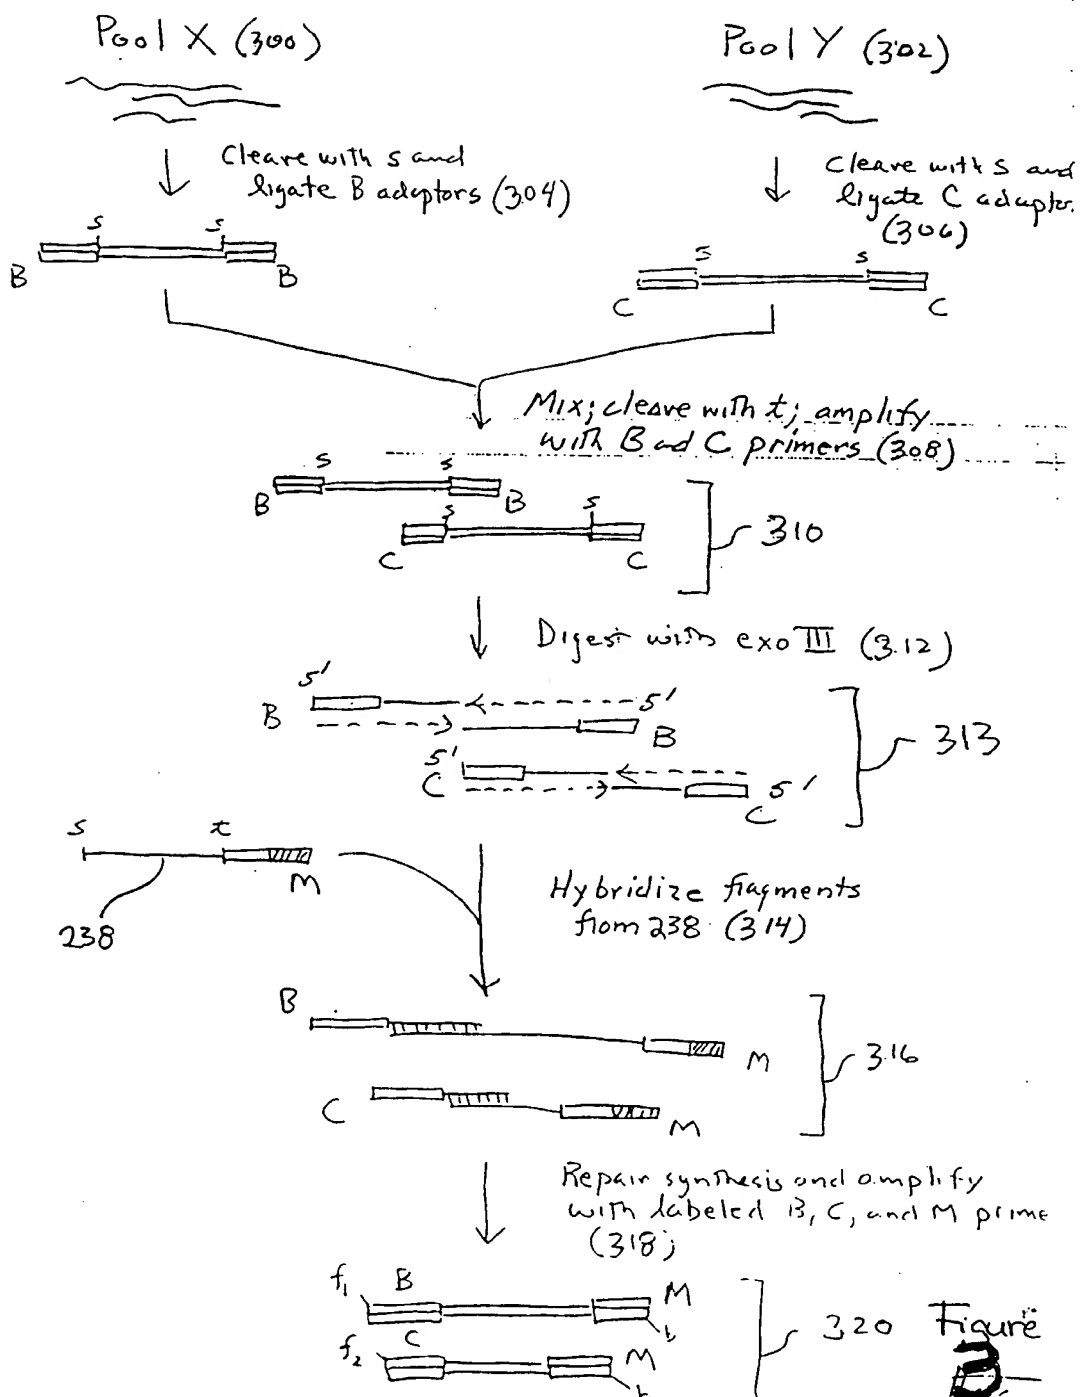 Pool X (300)
Pool Y (302)
Cleave with s and
ligate B adaptors (304)
Cleave with s and
ligate C adaptor
(306)
s s
B B
s s
C C
Mix; cleave with t; amplify
with B and C primers (308)
s s
B B
s s
C C
310
Digest with exo III (312)
5' 5'
B B
5'
C C 5'
313
s t
M
238
Hybridize fragments
from 238 (314)
B
M
C
M
316
Repair synthesis and amplify
with labeled B, C, and M prime
(318)
f1 B M
b
f2 C M
b
320
Figure
3